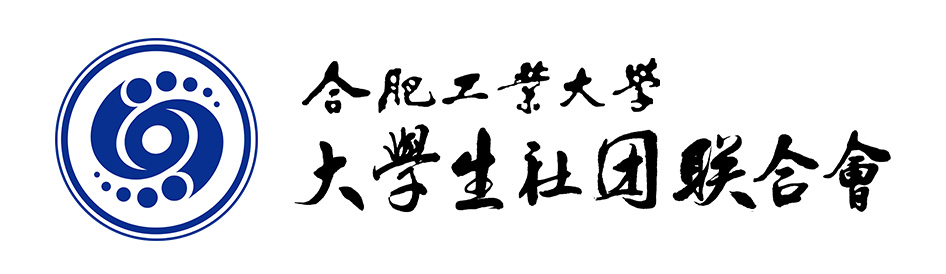 合肥工業大學
大學生社团联合會